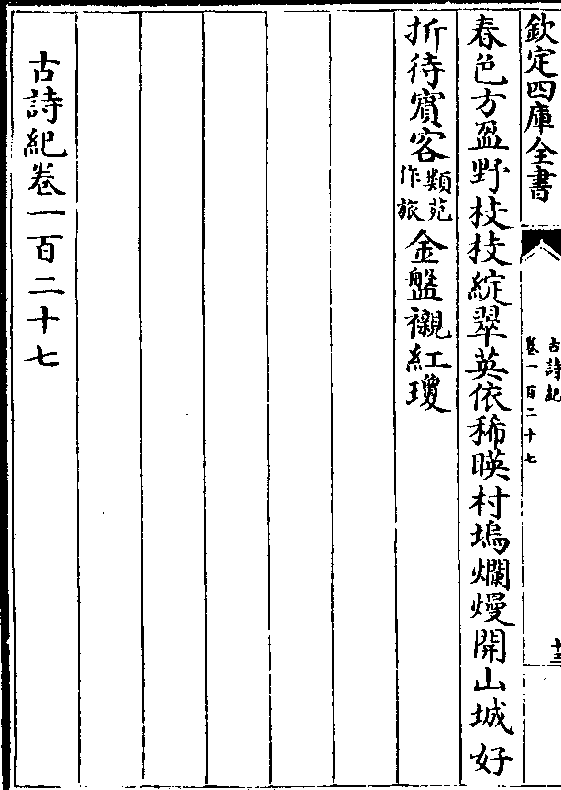 欽定四庫全書
古詩紀
卷一百二十七
十三
春色方盈野枝枝綻翠英依稀暎村塢爛熳開山城好
折待賔客類苑作旅金盤襯紅瓊
古詩紀卷一百二十七